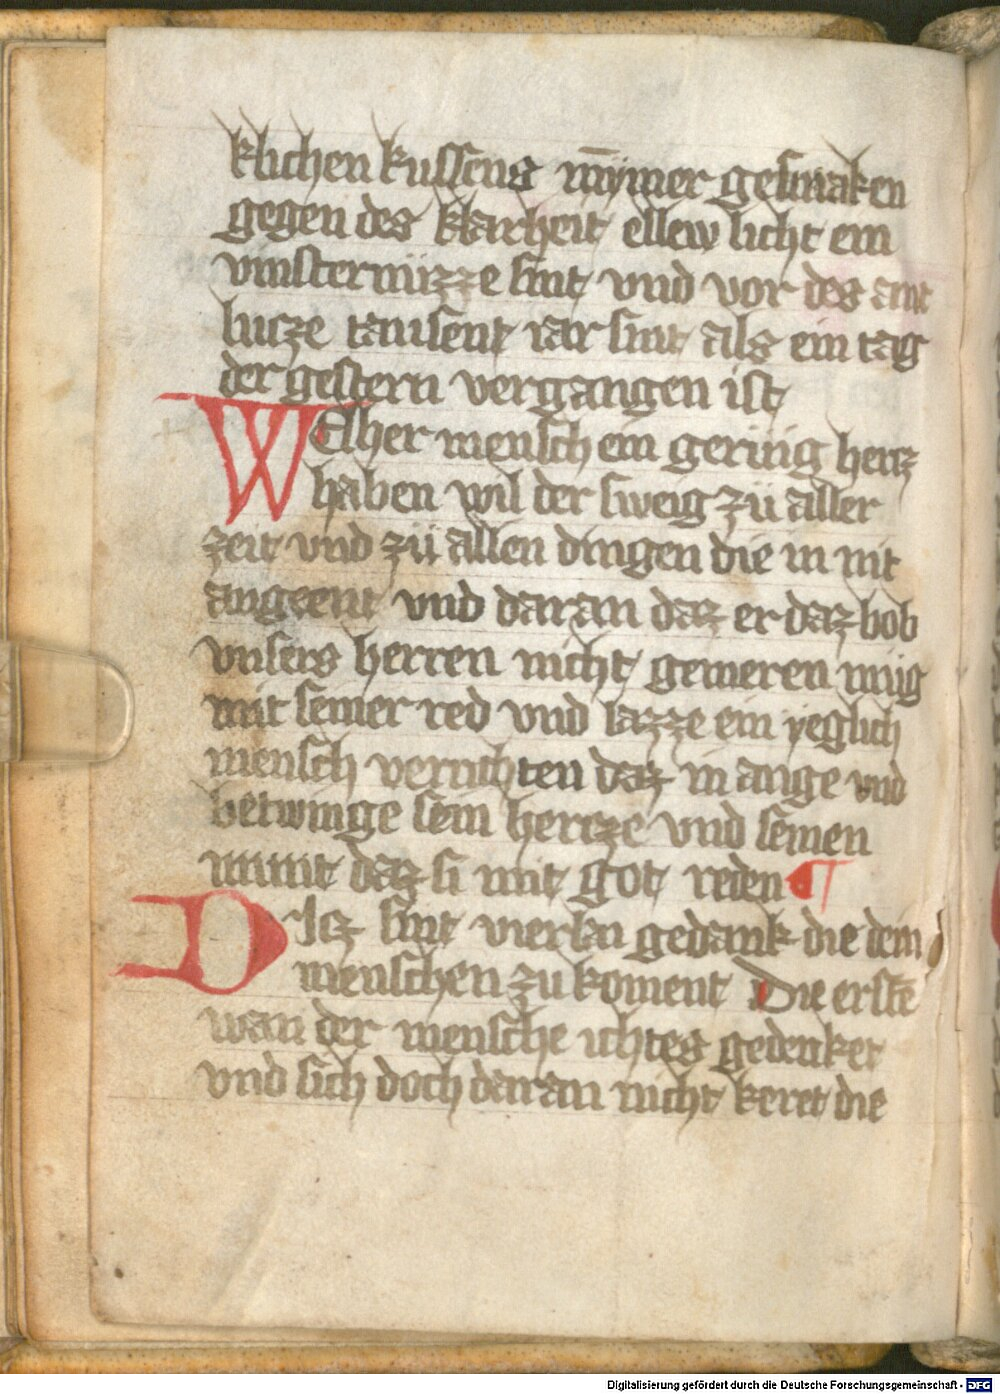 klichen kussens nȳmer gesmaken
gegen des klarheit ellew licht ein
vinsternüzze sint vnd vor des ant
lucze tausent iar sint als ein tag
der gestern vergangen ist
WElher mensch ein gering hercz
haben wil der sweig zü aller
zeit vnd zü allen dingen die in nit
angeent vnd daran daz er daz bob
vnsers herren nicht gemeren müg
mit seiner red vnd lazze ein yeglich
mensch verrichten daz in ange vnd
betwinge sein hercze vnd seinen
munt daz si mit got reden ¶
Dicz sint vierlai gedank die dem
menschen zu koment Die erstē
wan der mensche ichtes gedenket
vnd sich doch daran nicht keret die
Digitalisierung gefördert durch die Deutsche Forschungsgemeinschaft - DFG